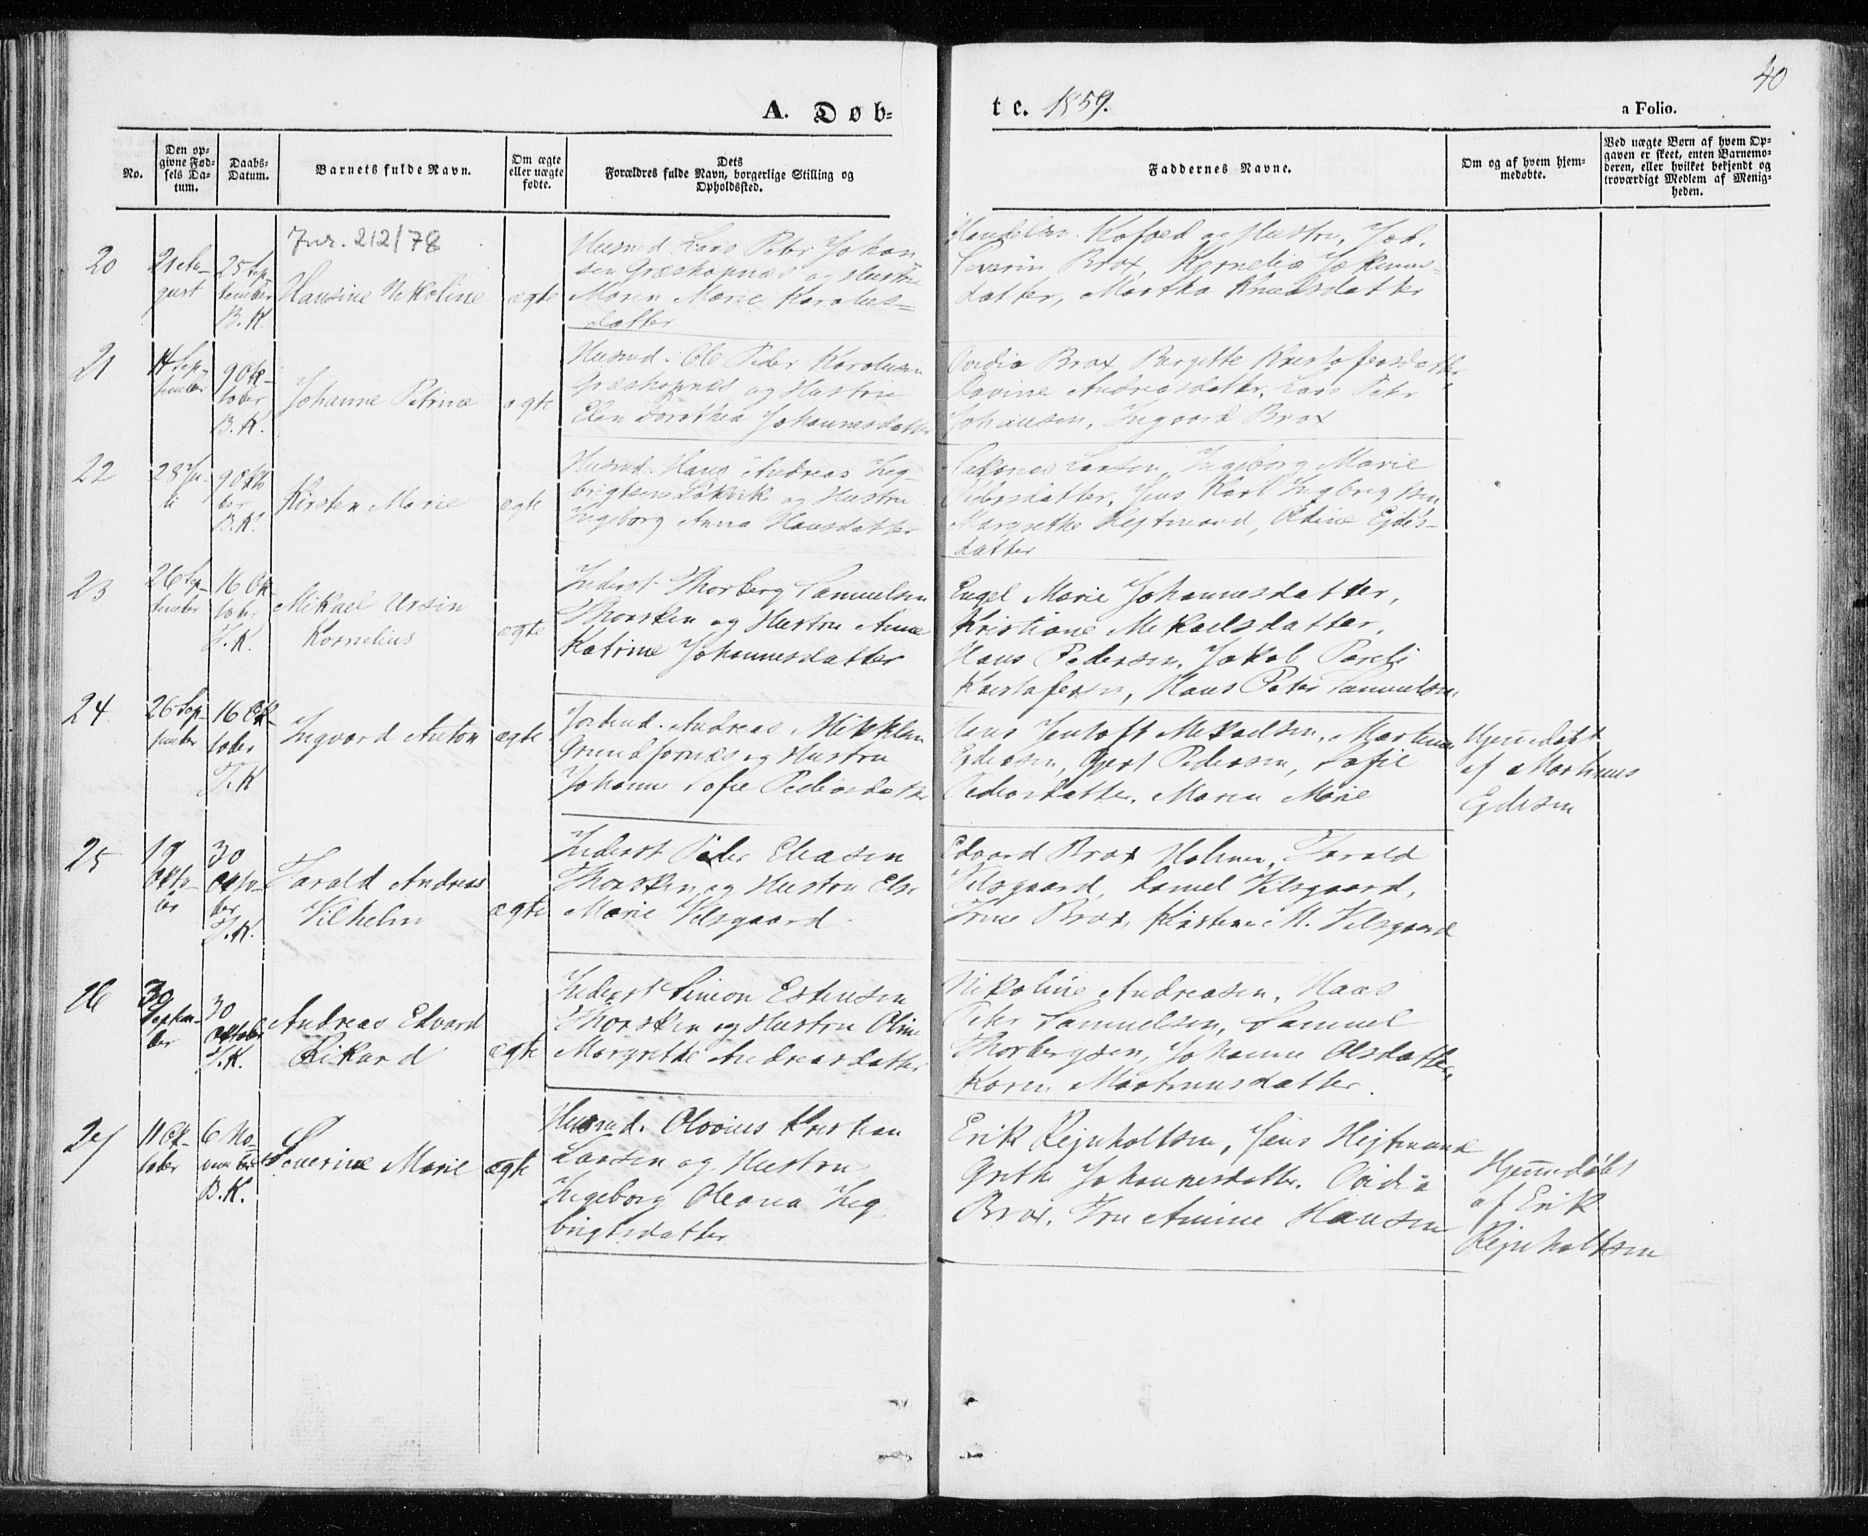 40
A. Døb-
te. 1859.
a Folio.
No.
Den op-
givne Fød-
sels Da-
tum.
Daabs-
Datum.
Barnets fulde Navn.
Om ægte
eller uægte
fødte.
Dets
Forældres fulde Navn, borgerlige Stilling og
Opholdssted.
Faddernes Navne.
Om og af hvem hjem-
medøbte.
Ved uægte Børn af hvem Op-
gaven er skeet, enten Barnemo-
deren, eller hvilket bekjendt og
troværdigt Medlem af Menig-
heden.
Jnr. 212/78
20
21 Au-
gust
25 Sep
tember
B. K.
Hansine Nikoline
ægte
Husmd. Lars Peter Johan
sen Græshopnæs og Hustru
Maren Marie Karolius-
datter
Kofoed og Hustru, Joh.
Severin Brox, Kornelia
datter, Martha Knudsdatter
21
14 Sep-
tember
9 Ok-
tober
B. K.
Johanne Petrine
ægte
Husmd. Ole Peder Karolusen
Græshopnæs og Hustru
Elen Dorothea Johannesdatter
Ovidia Brox, Birgitte Kristofersdatter,
Lovine Andreasdatter, Lars Peter
Johansen, Ingvard Brox
22
28 Ju-
li
9 Okto
ber
B. K.
Kirsten Marie
ægte
Husmd. Hans Andreas Ing-
brigtsen og Hustru
Ingeborg Anna Hansdatter
Larsen, Ingeborg Marie
Pedersdatter, Jens Karl Ingbrigtsen,
Margrethe Hejtmand, Oldine Ejdis-
datter
23
26 Sep-
tember
16 Ok
tober
T. K.
Mikael Ursin
Kornelius
ægte
Inderst Thorberg Samuelsen
Thorskin og Hustru Anne
Katrine Johannesdatter
Engel Marie Johannesdatter,
Kristiane Mikaelsdatter,
Hans Pedersen, Jakob Pareli
Kristofersen, Hans Peter Samuelsen,
24
26 Sep-
tember
16 Ok-
tober
T. K
Ingvard Anton
ægte
Jordbrd. Andreas Mikkelsen
Grundfornæs og Hustru
Johanne Sofie Pedersdatter
Hans Jentoft Mikaelsen, Martinus
Ejdesen, Gjert Pedersen, Sofie
Pedersdatter, Maren Marie
Hjemmedøbt
af Martinus
Ejdesen
25
19
Okto-
ber
30
Okto-
ber
T. K.
Harald Andreas
Vilhelm
ægte
Inderst Peder Eliasen
Thorskin og Hustru Else
Marie Vilsgaard
Edvard Brox Harald
Vilsgaard, Daniel Vilsgaard,
Trine Brox, Kirstine M. Vilsgaard
26
30
Septem-
ber
30
Oktober
T. K.
Andreas Edvard
Rikard
ægte
Inderst Simon Estensen
Thorskin og Hustru Oline
Margrethe Andreasdatter
Nikoline Andreasen, Hans
Peter Samuelsen, Samuel
Thorbergsen, Johanne Olsdatter,
Karen Martinusdatter.
27
11 Ok-
tober
6 No-
vember
B. K.
Severine Marie
ægte
Husmd. Olovius Kristian
Larsen og Hustru
Ingeborg Oleana Ing
brigtsdatter
Erik Rejnholtsen, Jens Hejtmand
Grethe Johannesdatter, Ovidia
Brox, Fru Amine Hansen
Hjemmedøbt
af Erik
Rejnholtsen